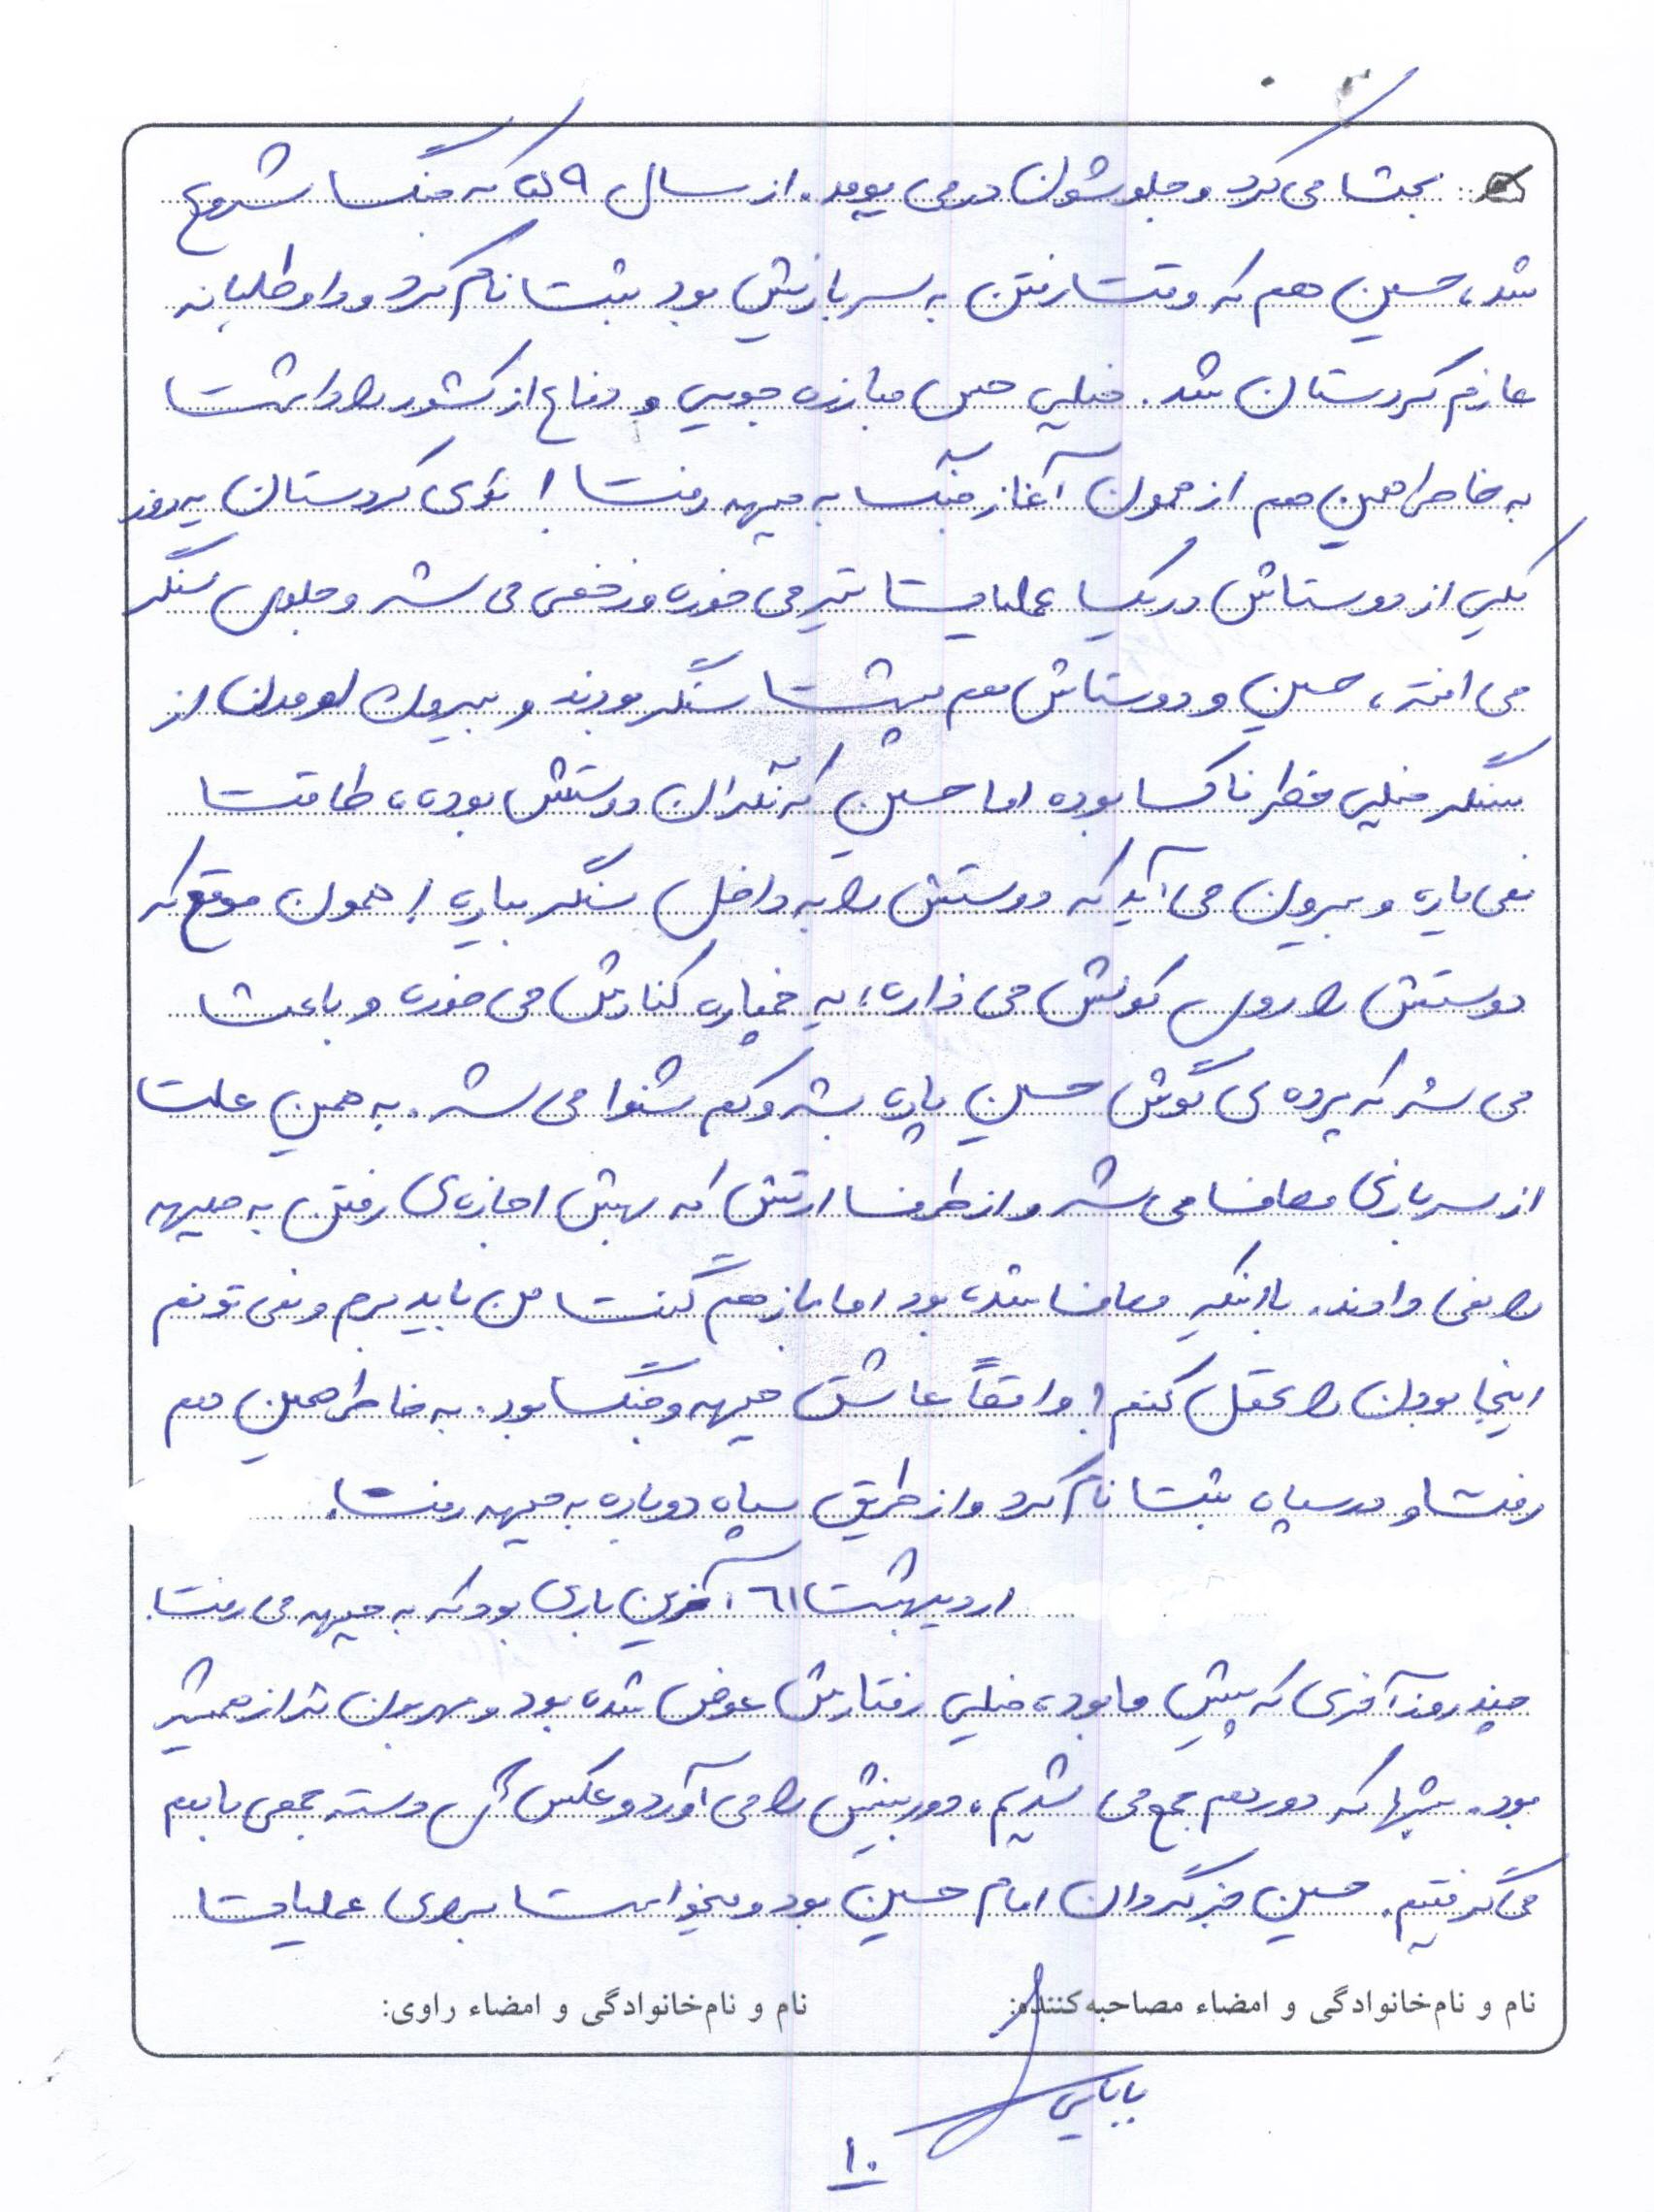 بحث می کرد و جلوشون در می یومد. از سال ۵۹ که جنگ شروع
شد، حسین هم که وقت رفتن به سربازیش بود ثبت نام کرد و داوطلبانه
عازم کردستان شد. خیلی حس مبارزه جویی و دفاع از کشور را داشت
به خاطر همین هم از همون آغاز جنگ به جبهه رفت! توی کردستان یه روز
یکی از دوستاش در یک عملیات تیر می خوره و زخمی می شه و جلوی سنگر
می افته، حسین و دوستاش هم پشت سنگر بودند و بیرون اومدن از
سنگر خیلی خطرناک بوده اما حسین که نگران دوستش بوده، طاقت
نمی یاره و بیرون می آید که دوستش را به داخل سنگر بیاره! همون موقع که
دوستش را روی کولش می ذاره، یه خمپاره کنارش می خوره و باعث
می شه که پرده ی گوش حسین پاره بشه و کم شنوا می شه. به همین علت
از سربازی معاف می شه و از طرف ارتش که بهش اجازه ی رفتن به جبهه
را نمی دادند. با اینکه معاف شده بود اما باز هم گفت من باید برم و نمی تونم
اینجا بودن را تحمل کنم! واقعاً عاشق جبهه و جنگ بود. به خاطر همین هم
رفت و در سپاه ثبت نام کرد و از طریق سپاه دوباره به جبهه رفت.
اردیبهشت ۶۱ آخرین باری بود که به جبهه می رفت.
چند روز آخری که پیش ما بود، خیلی رفتارش عوض شده بود و مهربون تر از همیشه
بود. شبها که دور هم جمع می شدیم، دوربینش را می آورد و عکس های دسته جمعی با هم
می گرفتیم. حسین جزء گردان امام حسین بود و میخواست برای عملیات
نام و نام‌خانوادگی و امضاء مصاحبه‌کننده:
نام و نام‌خانوادگی و امضاء راوی:
بابایی
۱۰